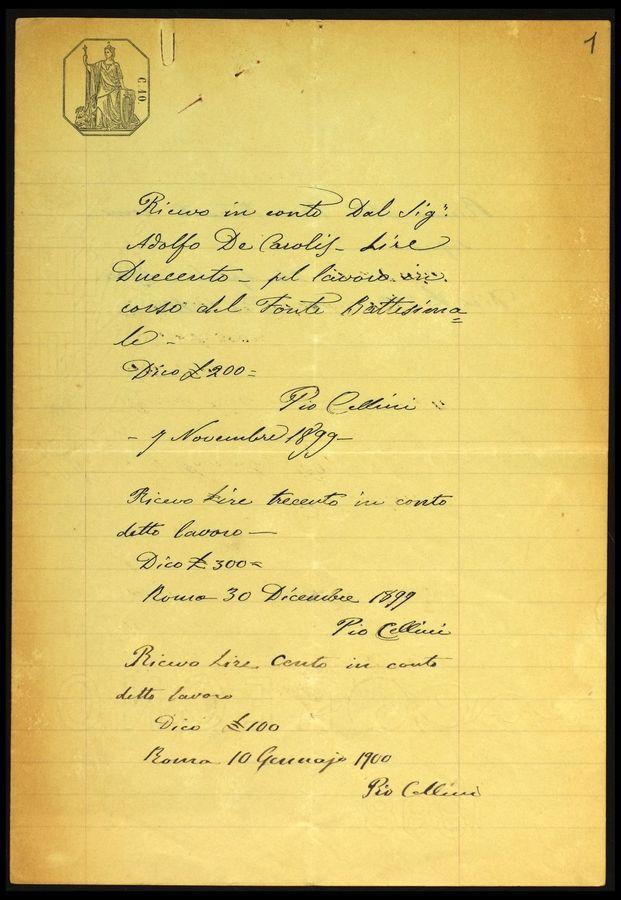 1
C. 10
Ricevo in conto Dal Sigr.
Adolfo De Carolis - Lire
Duecento - pel lavoro in
corso del Fonte Battesima=
le -
Dico £ 200 =
Pio Cellini
- 7 Novembre 1899 -
Ricevo Lire trecento in conto
detto lavoro -
Dico £ 300 =
Roma 30 Dicembre 1899
Pio Cellini
Ricevo Lire Cento in conto
detto lavoro
Dico £ 100
Roma 10 Gennajo 1900
Pio Cellini